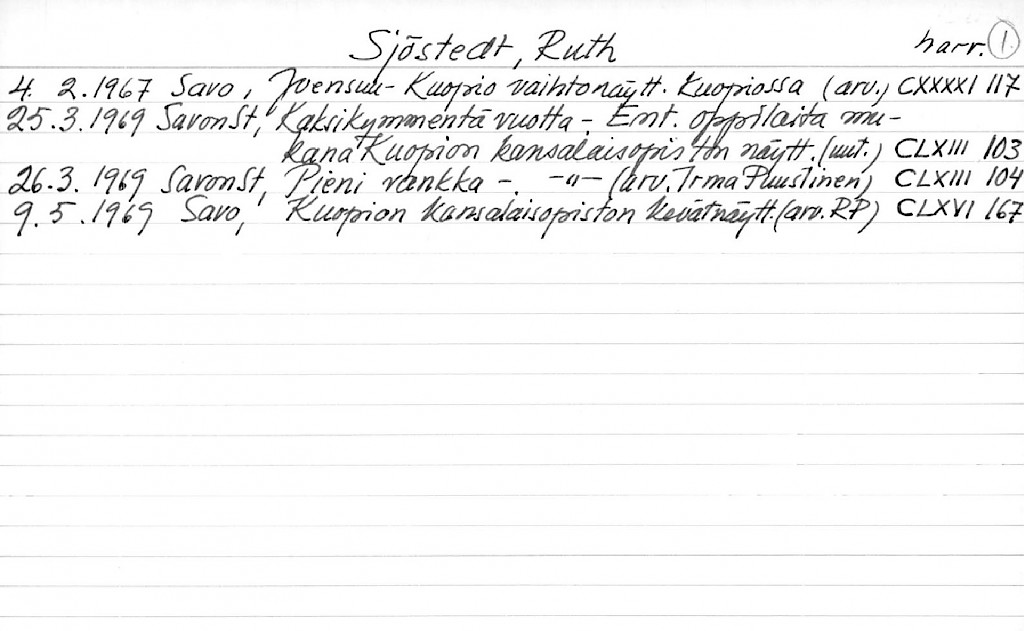 Sjöstedt, Ruth harr. 1.
4. 2. 1967 Savo, Joensuu-Kuopio vaihtonäytt. Kuopiossa (arv.) CXXXXI 117
25.3.1969 SavonSt, Kaksikymmentä vuotta -. Ent. oppilaita mu-
kana Kuopion kansalaisopiston näytt. (uut.) CLXIII 103
26.3. 1969 SavonSt, Pieni vankka -. -"- (arv. Irma Puustinen) CLXIII 104
9.5.1969 Savo, Kuopion kansalaisopiston kevätnäytt. (arv. RP) CLXVI 167